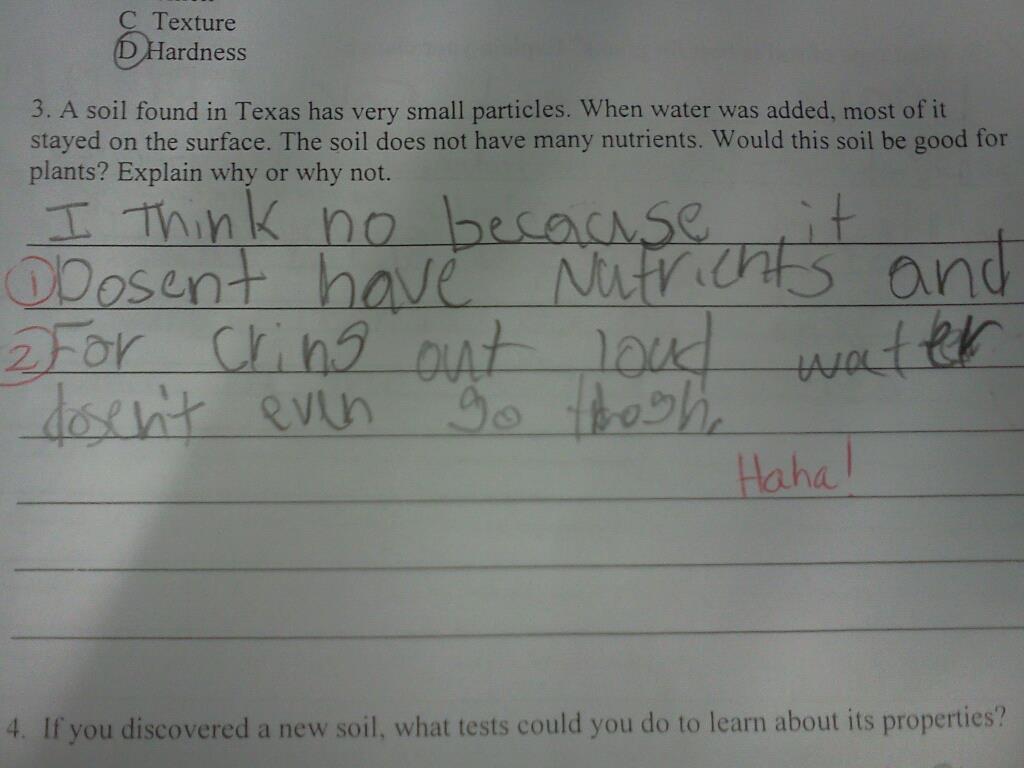 C Texture
D Hardness
3. A soil found in Texas has very small particles. When water was added, most of it
stayed on the surface. The soil does not have many nutrients. Would this soil be good for
plants? Explain why or why not.
I Think no becacuse it
1 Dosent have Nutrichts and
2 For Crins out loud watter
dosen't even go thogh.
Haha!
4. If you discovered a new soil, what tests could you do to learn about its properties?